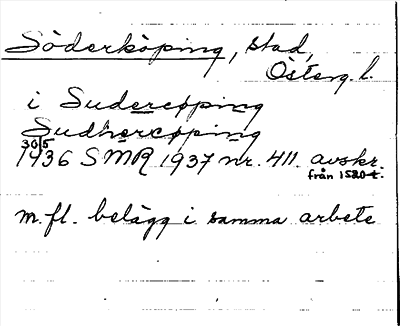 Söderköping, stad,
Österg. l.
i Sudercøping
Sudhercøping
30/5
1436 SMR 1937 nr. 411. avskr.
från 1520-t.
m.fl. belägg i samma arbete